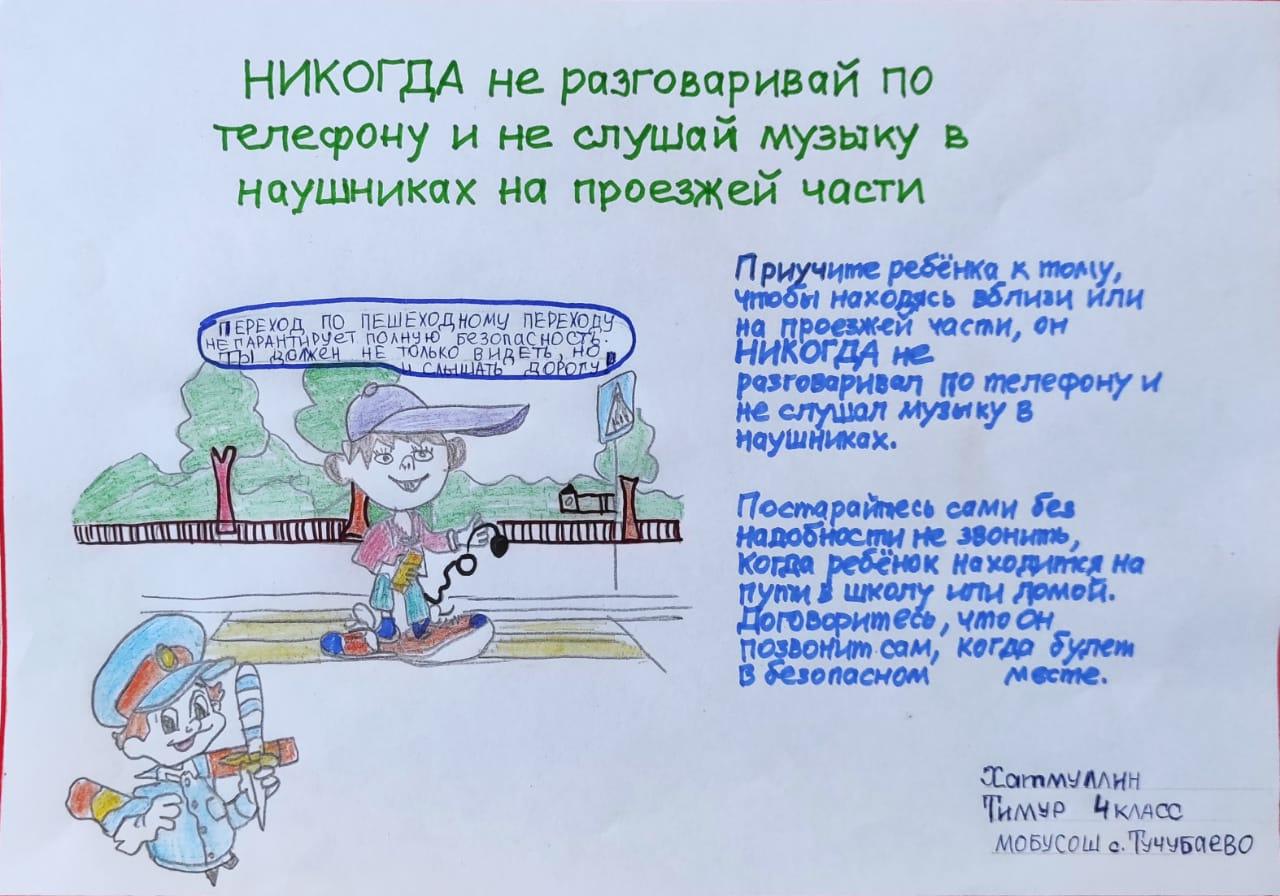 НИКОГДА не разговаривай по
телефону и не слушай музыку в
наушниках на проезжей части
ПЕРЕХОД ПО ПЕШЕХОДНОМУ ПЕРЕХОДУ
НЕ ГАРАНТИРУЕТ ПОЛНУЮ БЕЗОПАСНОСТЬ.
ТЫ ДОЛЖЕН НЕ ТОЛЬКО ВИДЕТЬ, НО
И СЛЫШАТЬ ДОРОГУ
Приучите ребёнка к тому,
чтобы находясь вблизи или
на проезжей части, он
НИКОГДА не
разговаривал по телефону и
не слушал музыку в
наушниках.
Постарайтесь сами без
надобности не звонить,
когда ребёнок находится на
пути в школу или домой.
Договоритесь, что он
позвонит сам, когда будет
в безопасном месте.
Хатмуллин
Тимур 4 класс
МОБУСОШ с. Тучубаево